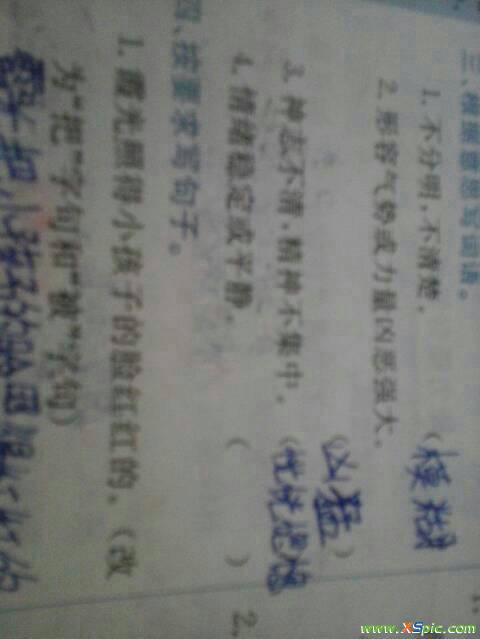 三、根据意思写词语。
1. 不分明，不清楚。（模糊）
2. 形容气势或力量凶恶强大。（凶猛）
3. 神志不清，精神不集中。（恍恍惚惚）
4. 情绪稳定或平静。（ ）
四、按要求写句子。
1. 霞光照得小孩子的脸红红的。（改
为“把”字句和“被”字句）
把小孩子的脸
2.
1.
www.XSpic.com